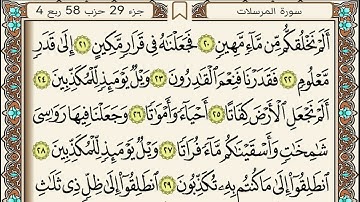 سورة المرسلات
جزء 29 حزب 58 ربع 4
أَلَمْ نَخْلُقكُّم مِّن مَّآءٍ مَّهِينٍ ٢٠ فَجَعَلْنَٰهُ فِى قَرَارٍ مَّكِينٍ ٢١ إِلَىٰ قَدَرٍ
مَّعْلُومٍ ٢٢ فَقَدَرْنَا فَنِعْمَ ٱلْقَٰدِرُونَ ٢٣ وَيْلٌ يَوْمَئِذٍ لِّلْمُكَذِّبِينَ ٢٤
أَلَمْ نَجْعَلِ ٱلْأَرْضَ كِفَاتًا ٢٥ أَحْيَآءً وَأَمْوَٰتًا ٢٦ وَجَعَلْنَا فِيهَا رَوَٰسِىَ
شَٰمِخَٰتٍ وَأَسْقَيْنَٰكُم مَّآءً فُرَاتًا ٢٧ وَيْلٌ يَوْمَئِذٍ لِّلْمُكَذِّبِينَ ٢٨
ٱنطَلِقُوٓا۟ إِلَىٰ مَا كُنتُم بِهِۦ تُكَذِّبُونَ ٢٩ ٱنطَلِقُوٓا۟ إِلَىٰ ظِلٍّ ذِى ثَلَٰثِ